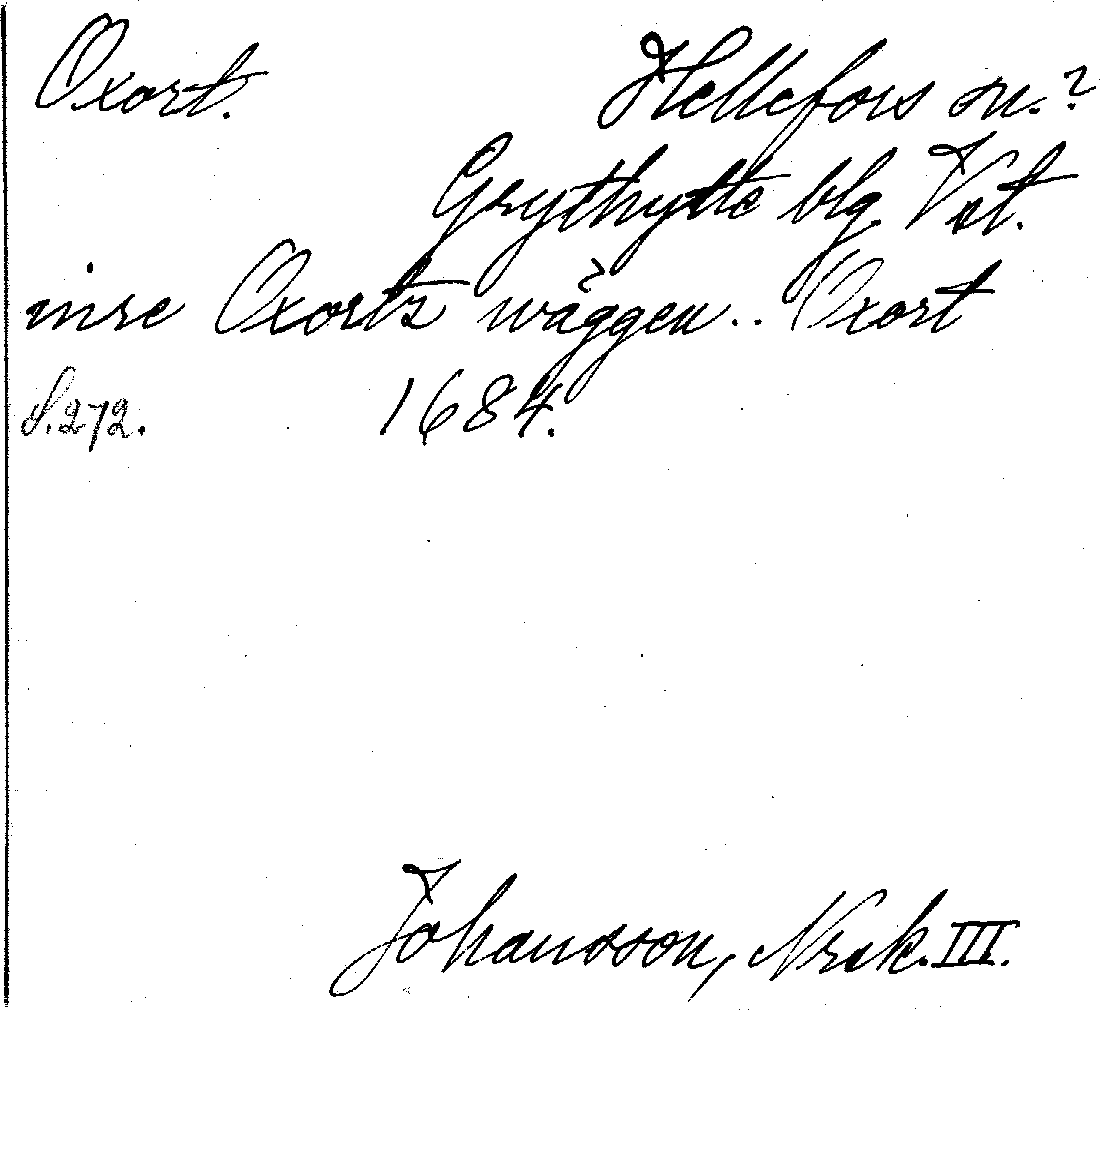 Oxort. Hellefors sn.?
Grythytte blg Vst.
inre Oxortz wäggen.. Oxort
S. 272. 1684.
Johansson, Nrek. III.